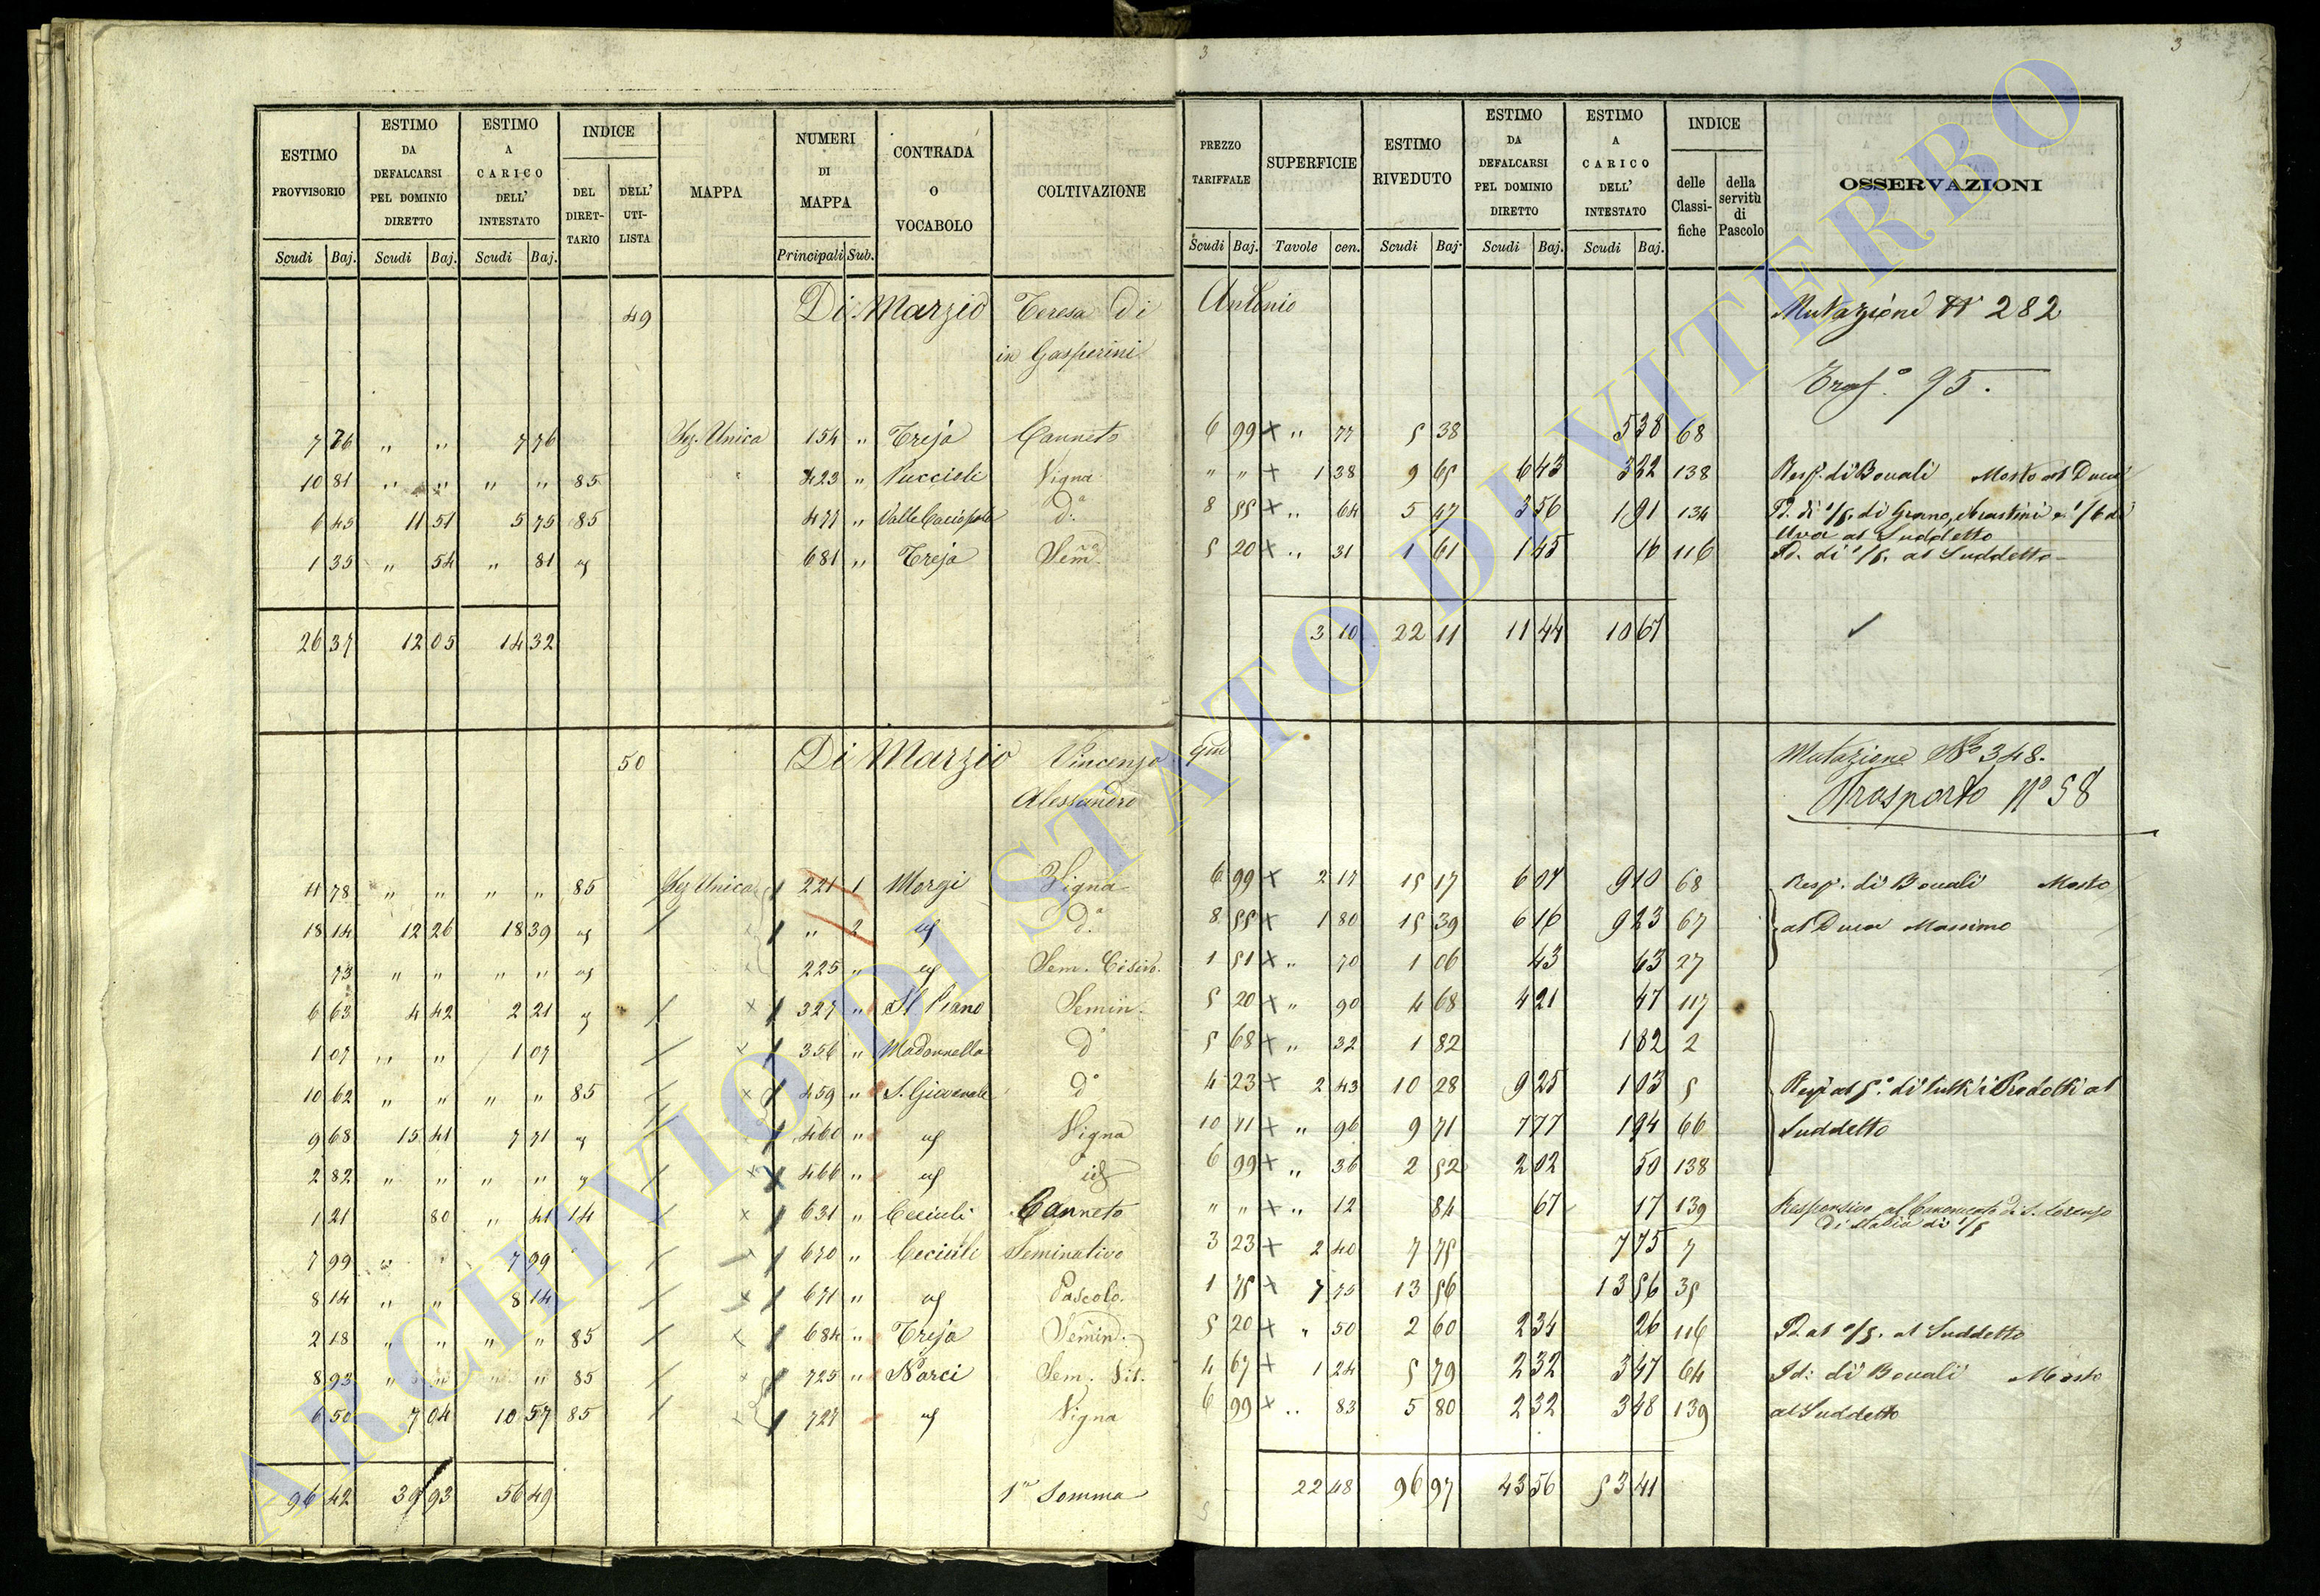 3 3
ESTIMO PROVVISORIO ESTIMO DA DEFALCARSI PEL DOMINIO DIRETTO ESTIMO A CARICO DELL' INTESTATO INDICE DEL DIRET-TARIO DELL' UTI-LISTA MAPPA NUMERI DI MAPPA CONTRADA O VOCABOLO COLTIVAZIONE PREZZO TARIFFALE SUPERFICIE ESTIMO RIVEDUTO ESTIMO DA DEFALCARSI PEL DOMINIO DIRETTO ESTIMO A CARICO DELL' INTESTATO INDICE delle Classi-fiche della servitù di Pascolo OSSERVAZIONI
Scudi Baj. Scudi Baj. Scudi Baj. Principali Sub. Scudi Baj. Tavole cen. Scudi Baj. Scudi Baj. Scudi Baj.
49 Di Marzio Teresa di Antonio Mutazione N 282
in Gasperini
95.
7 76 " " 7 76 Sez. Unica 154 " Treja Canneto 6 99 × " 77 5 38 5 38 68
10 81 " " " " 85 423 " Puccioli Vigna " " × 1 38 9 65 6 43 3 22 138 Resp. di Bocali Mosto al Duca
6 45 11 51 5 75 85 477 " Valle Vigna 8 55 × " 64 5 47 3 56 1 91 134 Id. di 1/5 di Grano, e 1/6 di
Uva al Suddetto
1 35 " 54 " 81 " 681 " Treja Sem. 5 20 × " 31 1 61 1 45 16 116 Id. di 1/5. al Suddetto
26 37 12 05 14 32 3 10 22 11 11 44 10 67
50 Di Marzio Vincenzo qm Mutazione No 348.
Alessandro Trasporto No 58
11 78 " " " " 85 Sez. Unica 221 1 Morgi Vigna 6 99 × 2 17 15 17 6 07 9 10 68 Resp. di Bocali Mosto
18 14 12 26 18 39 " " 2 " do 8 55 × 1 80 15 39 6 16 9 23 67 al Duca Massimo
73 " " " " " 225 " " Sem. 1 51 × " 70 1 06 43 63 27
6 63 4 42 2 21 " × 327 " Il Piano Semin. 5 20 × " 90 4 68 4 21 47 117
1 07 " " 1 07 × 356 " Madonnella do 5 68 × " 32 1 82 1 82 2
10 62 " " " " 85 × 459 " S. Giovenale do 4 23 × 2 43 10 28 9 25 1 03 5 Resp. al 5o. di tutti i Prodotti al
9 68 15 41 7 71 " 460 " " Vigna 10 11 × " 96 9 71 7 77 1 94 66 Suddetto
2 82 " " " " " × 466 " " id 6 99 × " 36 2 52 2 02 50 138
1 21 80 " 41 14 × 631 " Ceciuli Canneto " " × " 12 84 67 17 139 Responsivo al Canonicato di S. Lorenzo
di 1/5
7 99 " " 7 99 670 " Ceciuli Seminativo 3 23 × 2 40 7 75 7 75 7
8 14 " " 8 14 × 671 " " Pascolo. 1 75 × 7 75 13 56 13 56 35
2 18 " " " " 85 × 684 " Treja Semin. 5 20 × " 50 2 60 2 34 26 116 Id. al 1/5. al Suddetto
8 93 " " " " 85 × 725 " Narci Sem. Vit. 4 67 × 1 24 5 79 2 32 3 47 64 Id: di Bocali Mosto
6 50 7 04 10 57 85 × 727 " Vigna 6 99 × " 83 5 80 2 32 3 48 139 al Suddetto
96 42 39 93 56 49 1a Somma 22 48 96 97 43 56 53 41
ARCHIVIO DI STATO DI VITERBO